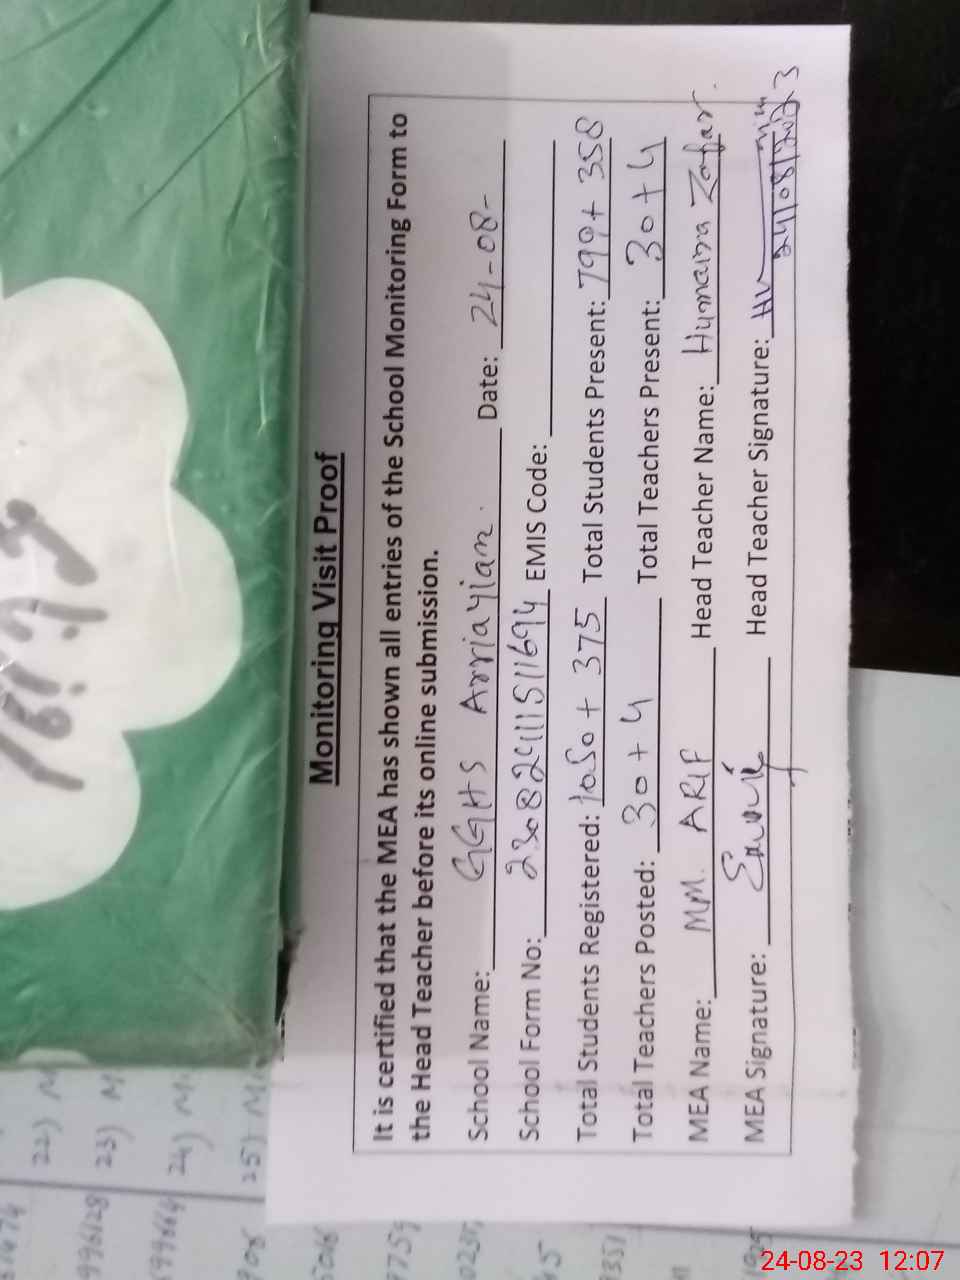 Monitoring Visit Proof
It is certified that the MEA has shown all entries of the School Monitoring Form to
the Head Teacher before its online submission.
School Name: GGHS Arriayian. Date: 24-08-
School Form No: EMIS Code:
Total Students Registered: 1050 + 375 Total Students Present: 799 + 358
Total Teachers Posted: 30 + 4 Total Teachers Present: 30 + 4
MEA Name: MM. ARIF Head Teacher Name: Humaira Zafar.
MEA Signature: Head Teacher Signature:
24/08/2023
22) M
23) M
24) M.
25) M.
996128
99664
24-08-23 12:07